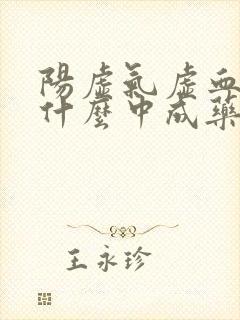 陽虛氣虛血
什麼中成藥
王永珍